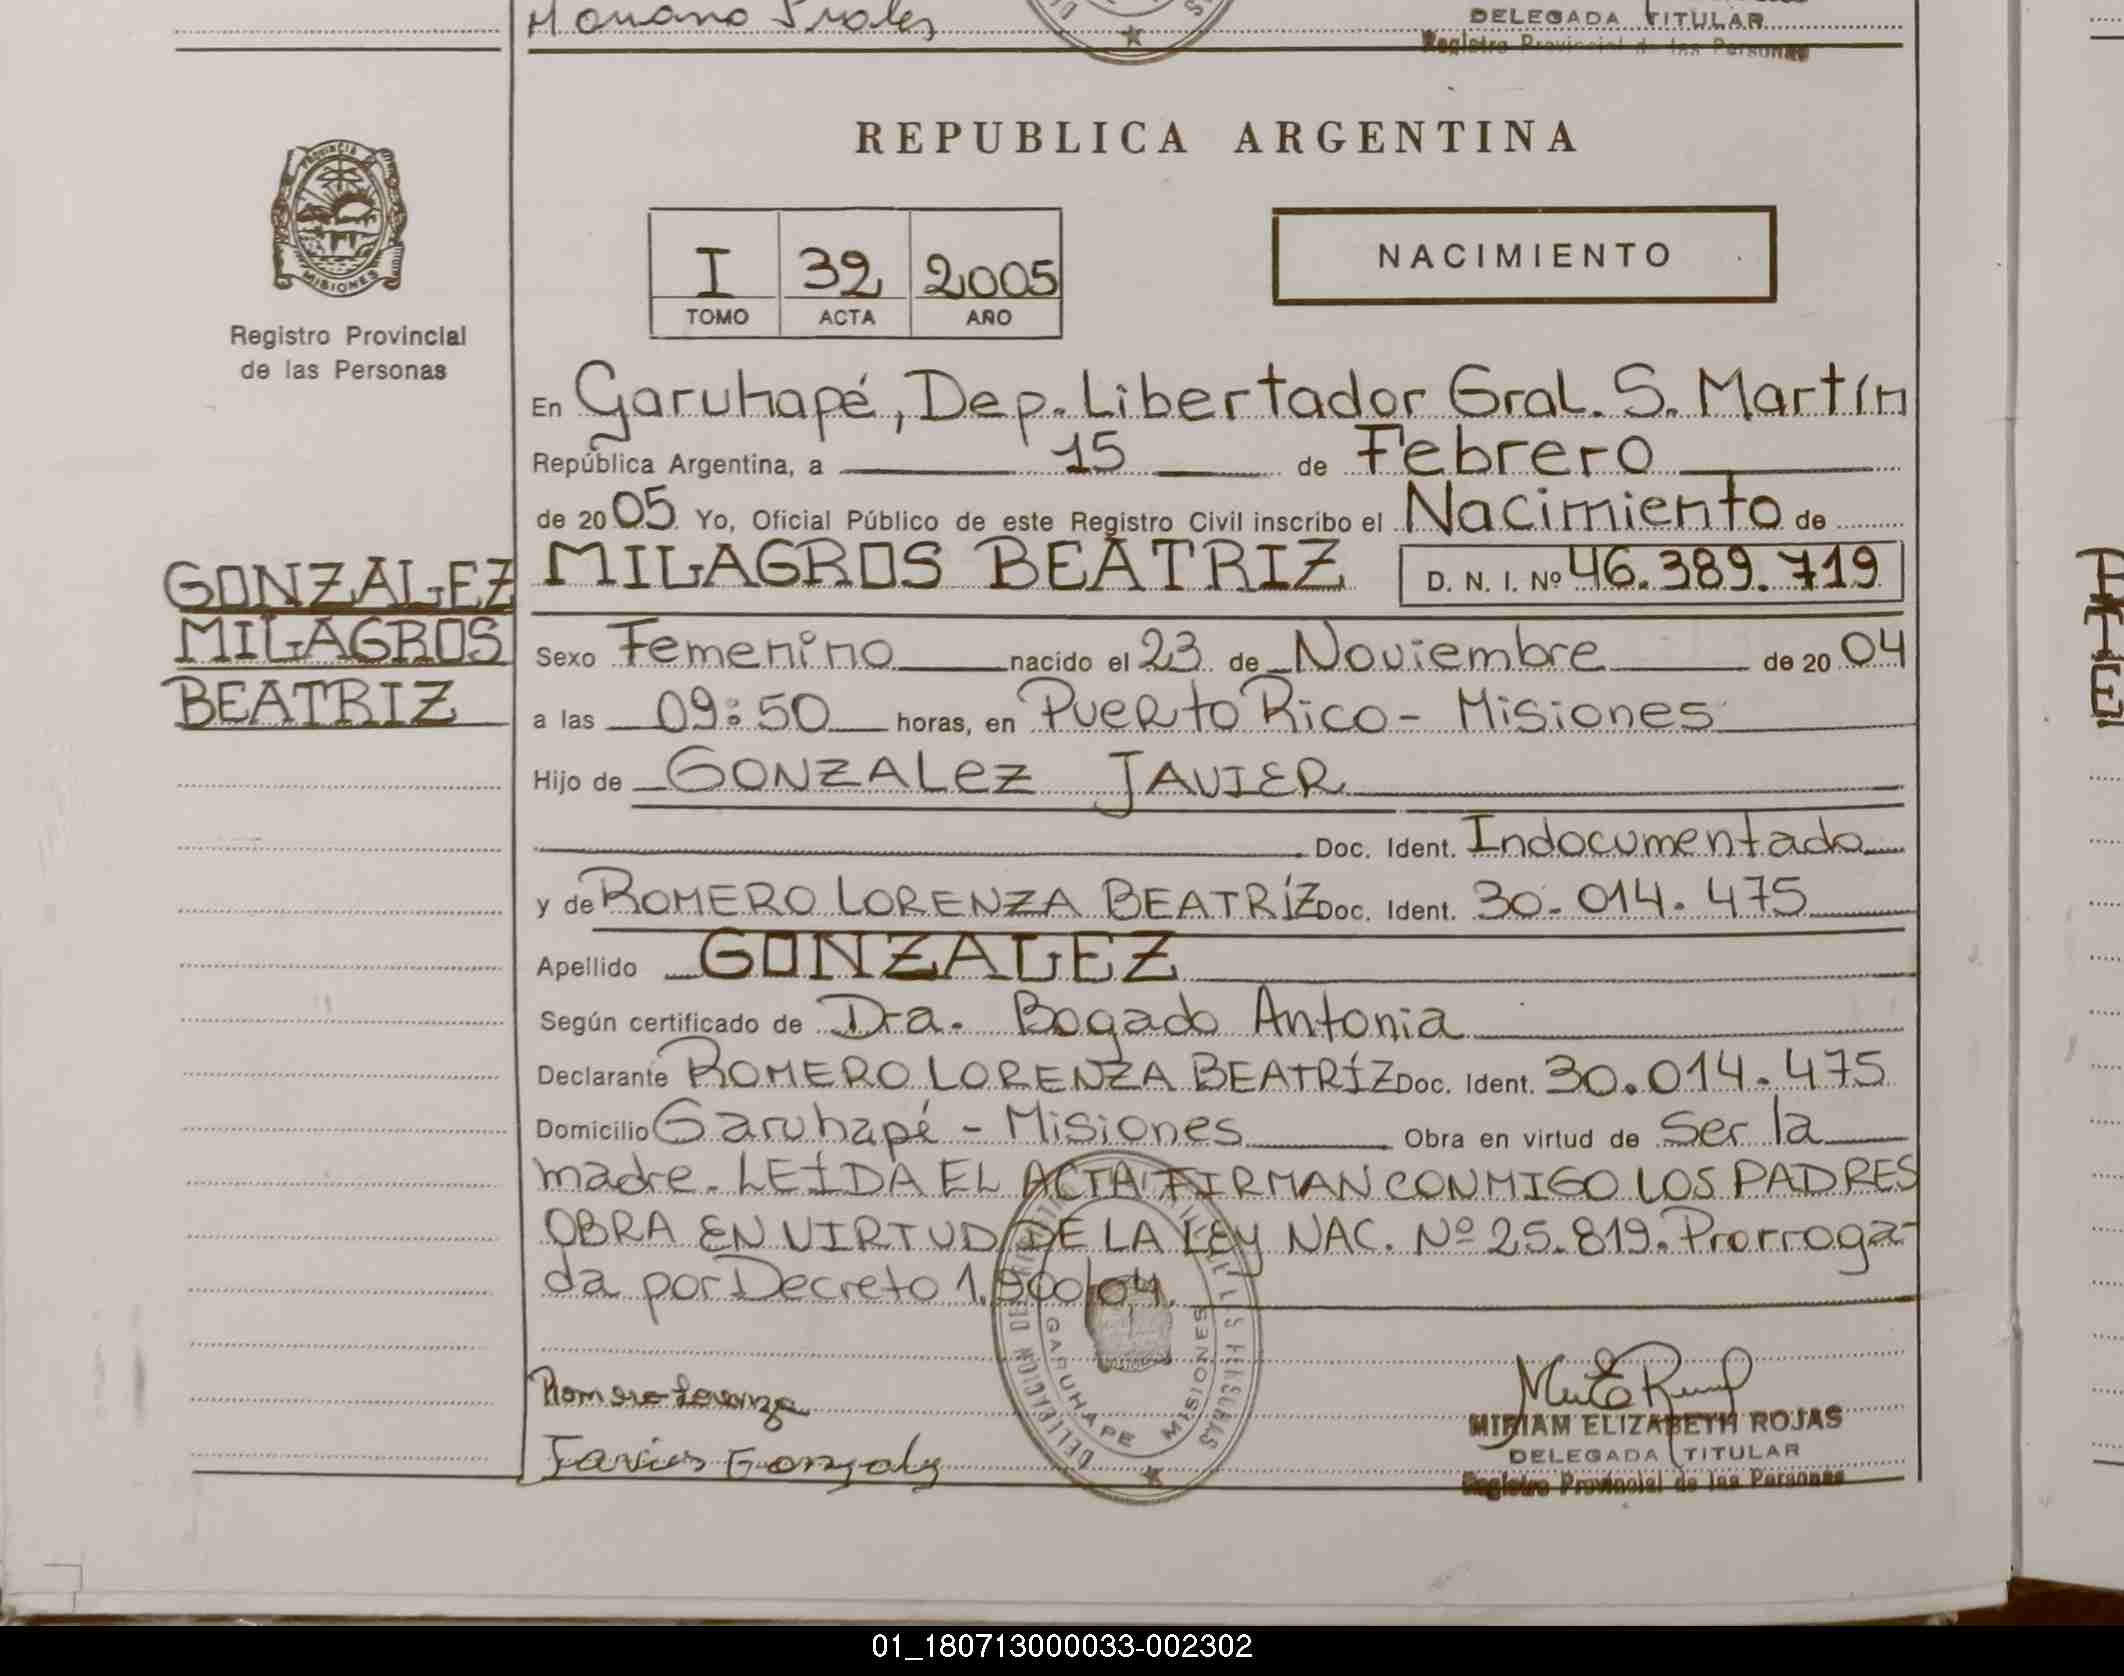 DELEGADA TITULAR
Registro Provincial de las Personas
REPUBLICA ARGENTINA
PROVINCIA
MISIONES
Registro Provincial
de las Personas
I 32 2005
TOMO ACTA AÑO
NACIMIENTO
En Garuhapé, Dep. Libertador Gral. S. Martín
República Argentina, a 15 de Febrero
de 2005. Yo, Oficial Público de este Registro Civil inscribo el Nacimiento de
GONZALEZ
MILAGROS
BEATRIZ
MILAGROS BEATRIZ D. N. I. Nº 46.389.719
Sexo Femenino nacido el 23 de Noviembre de 2004
a las 09:50 horas, en Puerto Rico - Misiones
Hijo de GONZALEZ JAVIER
Doc. Ident. Indocumentado
y de ROMERO LORENZA BEATRÍZ Doc. Ident. 30.014.475
Apellido GONZALEZ
Según certificado de Dra. Bogado Antonia
Declarante ROMERO LORENZA BEATRÍZ Doc. Ident. 30.014.475
Domicilio Garuhapé - Misiones Obra en virtud de Ser la
madre. LEÍDA EL ACTA FIRMAN CONMIGO LOS PADRES
OBRA EN VIRTUD DE LA LEY NAC. Nº 25.819. Prorroga-
da por Decreto 1.900/04.
GARUHAPE MISIONES
Romero Lorenza
MIRIAM ELIZABETH ROJAS
DELEGADA TITULAR
Registro Provincial de las Personas
01_180713000033-002302